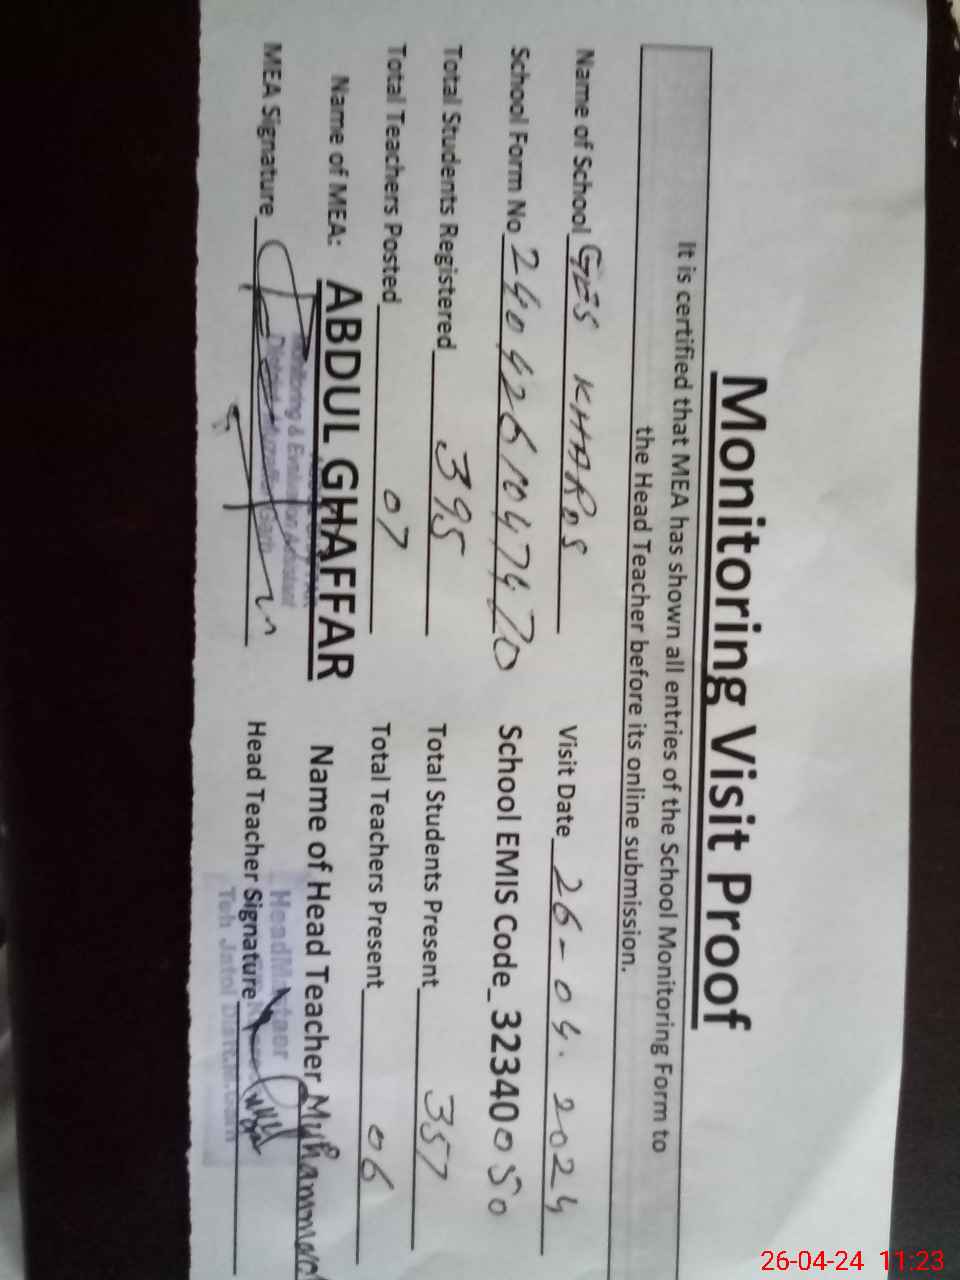 Monitoring Visit Proof
It is certified that MEA has shown all entries of the School Monitoring Form to
the Head Teacher before its online submission.
Name of School GES KHAROS Visit Date 26-04.2024
School Form No 2404261047470 School EMIS Code_32340050
Total Students Registered 395 Total Students Present 357
Total Teachers Posted 07 Total Teachers Present 06
Name of MEA: ABDUL GHAFFAR Name of Head Teacher Muhammad
MEA Signature Head Teacher Signature
Monitoring & Evaluation Assistant
26-04-24 11:23